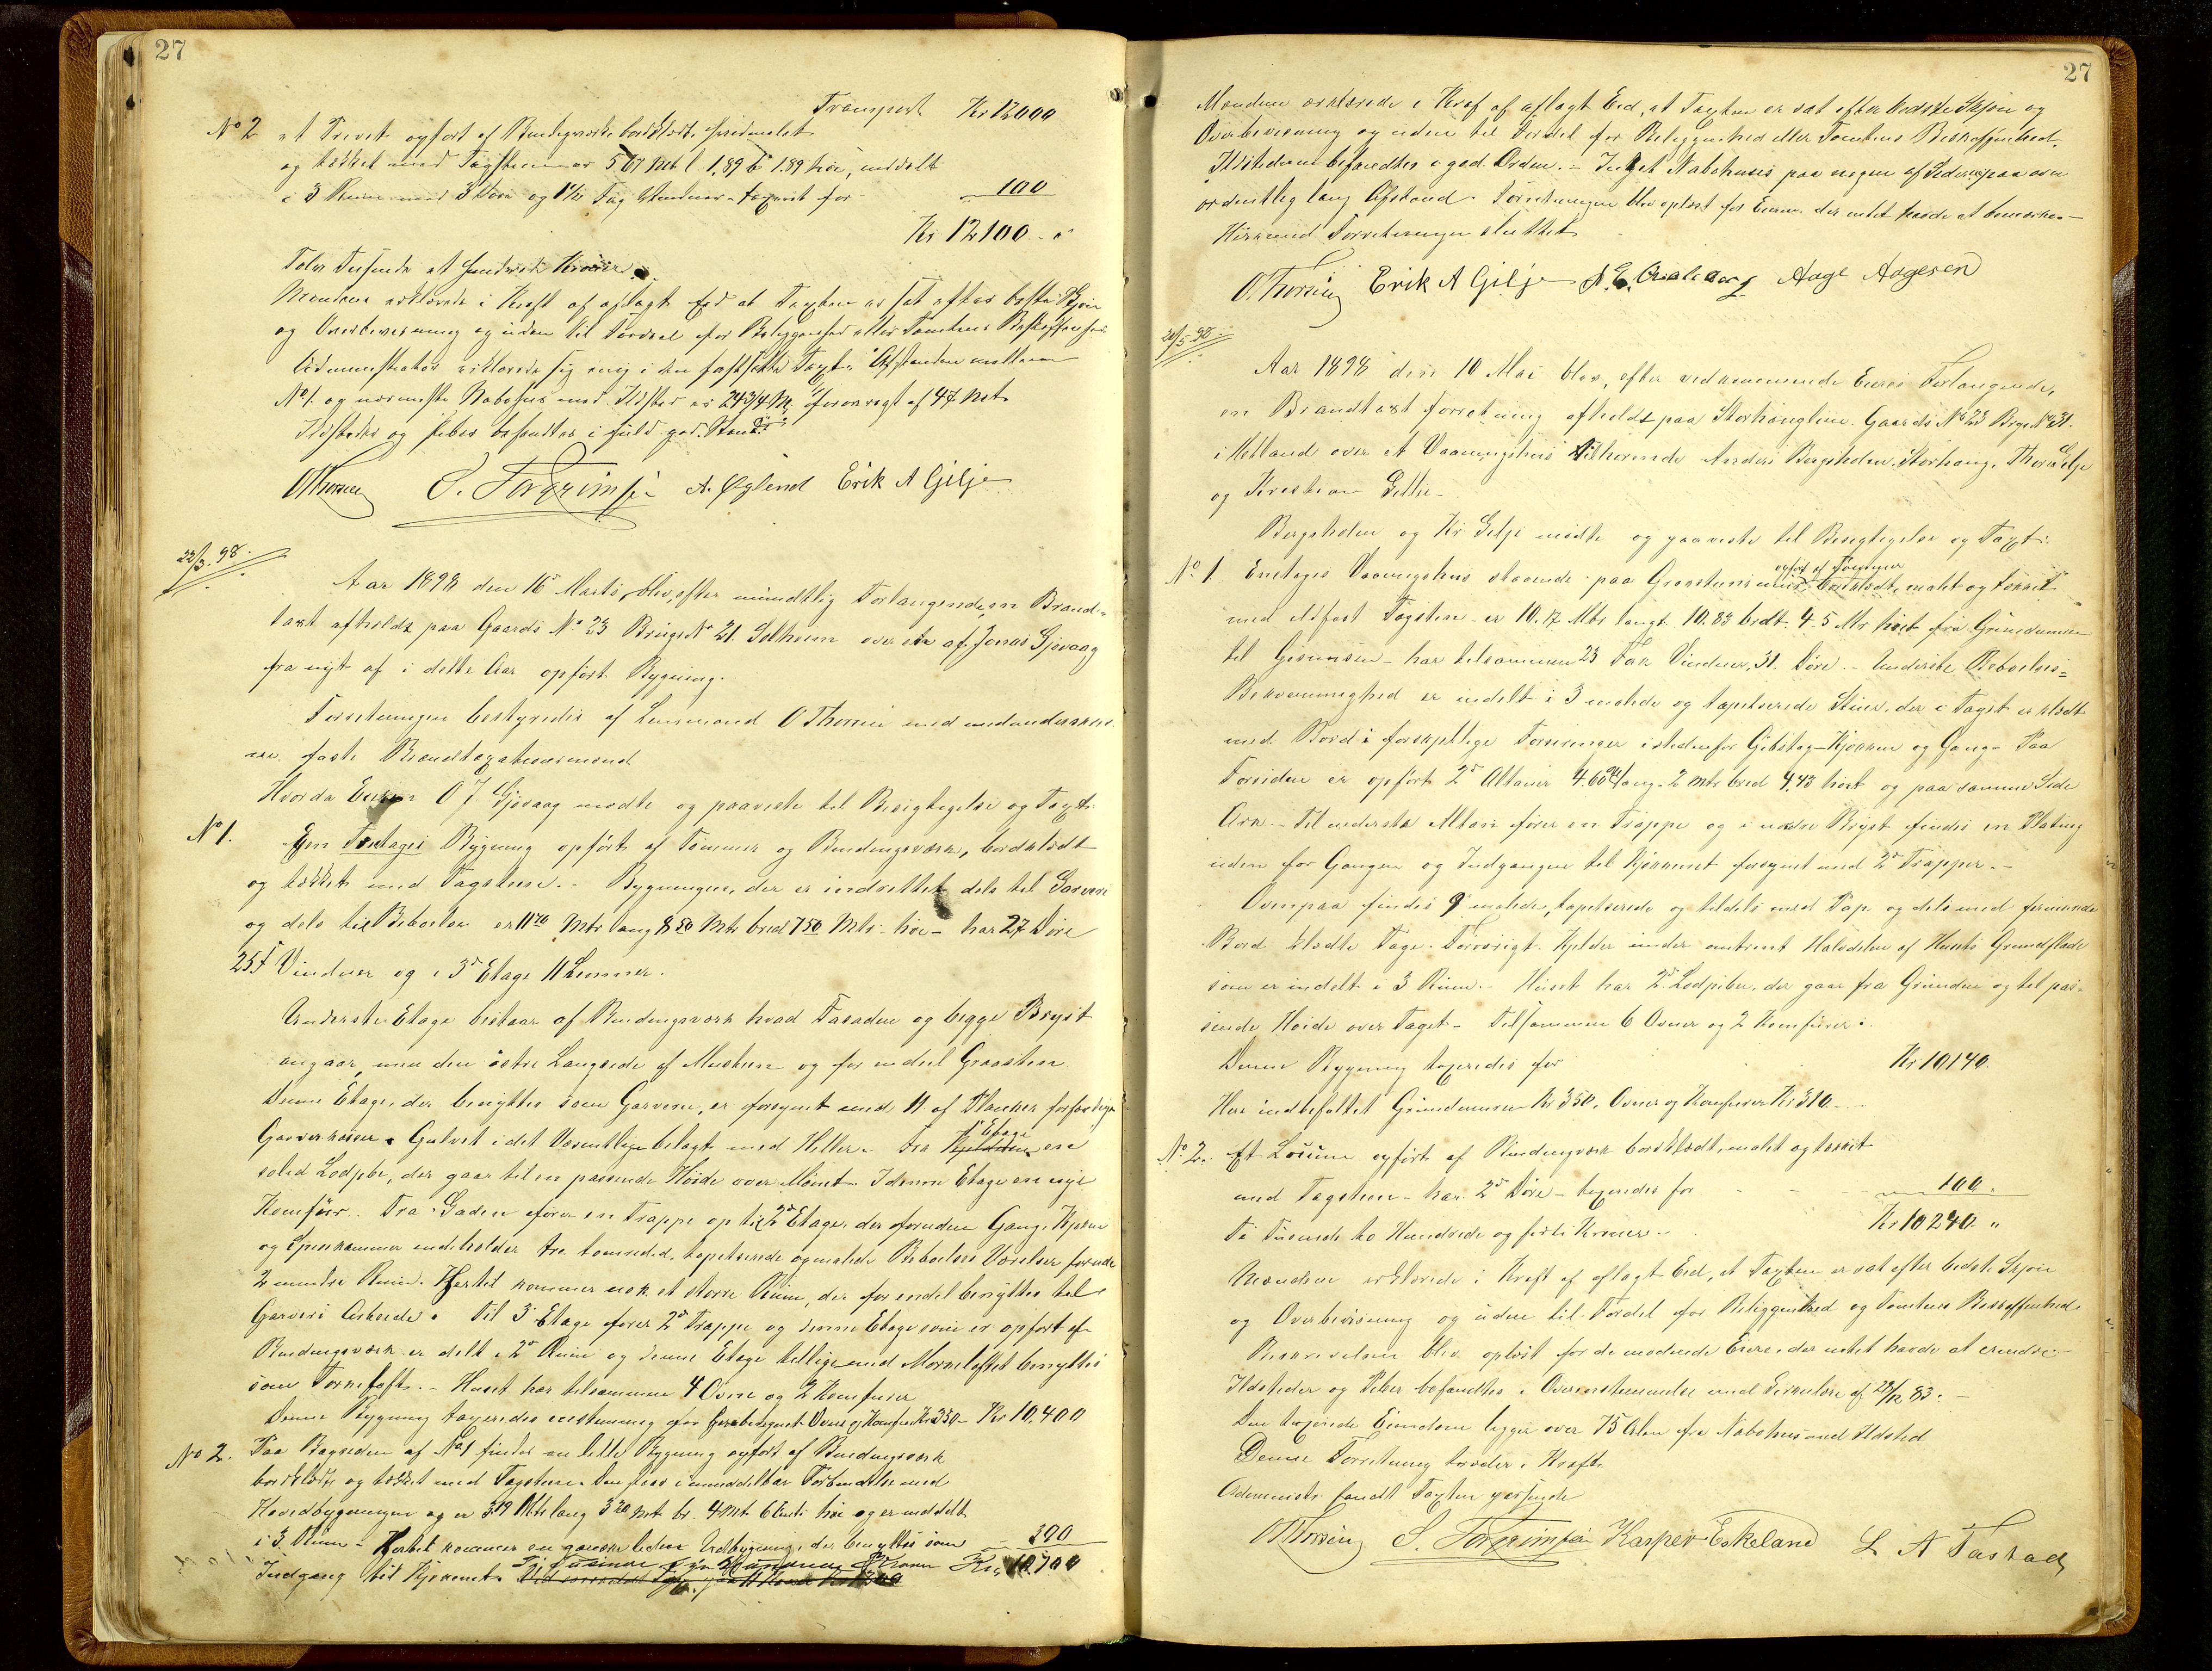 27
Transport Kr 12000
No 2 et Privet opført af Bindingsværk bordklædt, umalet
og tækket med Tagsten er 5.67 Met l. 1,89 b 1.89 høi, inddelt
i 3 Rum med 3 Døre og 1½ Fag Vinduer - taxeret for 100
Kr 12100 - "
Tolv Tusinde et Hundrede Kroner
Mændene erklærede i Kraft af aflagt Ed at Taxten er sat efter bedste Skjøn
og Overbevisning og uden til Fordeel for Beliggenhed eller Tomtens Beskaffenhed
Administrator erklærede sig enig i den fastsatte Taxt. Afstanden mellem
No 1. og nærmeste Nabohus med Ildsted er 24 3/4 M, forøvrigt af 47 Met
Ildsteder og Piber befandtes i fuld god Stand
OThorsen S. Torgrimsen A. Øglend Erik A Gilje
22/3. 98.
Aar 1898 den 16 Marts, blev, efter mundtlig Forlangende, en Brand-
taxt afholdt paa Gaards No 23 Brugs No 21. Solheim over en af Jonas Gjøvaag
fra nyt af i dette Aar opført Bygning.
Forretningen bestyredes af Lensmand O Thorsen med medunderskrev-
ne faste Brandtaxationsmænd
Hvorda Eieren O J Gjøvaag mødte og paaviste til Besigtigelse og Taxt:
No 1. Een Treetages Bygning opført af Tømmer og Bindingsværk, bordklædt
og tækket med Tagstene. - Bygningen, der er indrettet dels til Garveri
og dels til Beboelse er 11 70 Mtr lang 8 50 Mtr bred 7 50 Mtr - høi - har 27 Døre
25 F Vinduer og i 3de Etage 11 Lemmer.
Underste Etage bestaar af Bindingsværk hvad Fasaden og begge Bryst
angaar, men den østre Langside af Mursten og for endeel Graasten
Denne Etage, der benyttes som Garveri, er forsynet med 11 af Planker forfærdigede
Garverkasser. Gulvet i det Væsentlige belagt med Heller. Fra 1ste Etage en
solid Lodpibe, der gaar til en passende Høide over Mønet. I denne Etage en nye
Komfür. Fra Gaden fører en Trappe op til 2den Etage, der foruden Gang, Kjøken
og Spisekammer indeholder tre tømrede, tapetserede og malede Beboelses Værelser foruden
2 mindre Rum. Hertil kommer nok et større Rum, der for endel benyttes til
Garveri Arbeide. Til 3 Etage fører 2de Trappe og denne Etage som er opført af
Bindingsværk er delt i 2de Rum og denne Etage tilligemed Mørneloftet benyttes
som Tørkeloft. - Huset har tilsammen 4 Ovne og 2 Komfurer
Denne Bygning taxeredes enstemmig for heriberegnet Ovne og Komfur Kr 350 - Kr 10,400
No 2. Paa Bagsiden af No 1 findes en liden Bygning opført af Bindingsværk
bordklædt og tækket med Tagstene. Den staar i umiddelbar Forbindelse med
Hovedbygningen og er 3 19 Mtr lang 3 20 Mt br. 4 Mt 6 Centi høi og er inddelt
i 3 Rum - Hertil kommer en ganske liden Udbygning, der benyttes som 300
Indgang til Kjøkenet. Ti Tusinde Syv Hundrede Kroner Kr 10700
27
Mændene erklærede i Kraf af aflagt Eed, at Taxten er sat efter bedste Skjøn og
Overbevisning og uden til Fordel for Beliggenhed eller Tomtens Beskaffenhed.
Ildstederne befandtes i god Orden. - Intet Nabohuus paa nogen af Siderne paa over
ordentlig lang Afstand. Forretningen blev oplæst for Eieren der intet havde at bemærke. -
Hermed Forretningen sluttet
O. Thorsen Erik A Gilje Aage Aagesen
20/5 98.
Aar 1898 den 10 Mai blev, efter vedkommende Eieres Forlangende,
en Brandtaxt forretning afholdt paa Storhouglien Gaards No 23 Brugs No 31.
i Hetland over et Vaaningshus tilhørende Anders Bergsholm, Storhoug, Thora Gilje
og Kristian Gilje -
Bergsholm og Kr Gilje mødte og paaviste til Besigtigelse og Taxt:
No 1 Enetages Vaaningshus staaende paa Graasteins mur opført af Tømmer bordklædt, malet og tækket
med ildfast Tagsten - er 10.17 Mtr langt 10.83 bredt 4.5 Mtr høit fra Grundmuren
til Gesimsen - har tilsammen 23 Fag Vinduer, 31. Døre. - Underste Beboelses-
Bekvemmelighed er inddelt i 3 malede og tapetserede Stuer, der i Taget er klædt
med Bord i forskjellige Formninger istedenfor Gibstag - Kjøkken og Gang - Paa
Forsiden er opført 2de Altaner 4.60 lang - 2 mtr bred 4,43 høit og paa samme Side
Ark. - Til nederste Altan fører en Trappe og i nedre Bryst findes en Platting
uden for Gangen og Indgangen til Kjøkkenet forsynet med 2de Trapper. -
Ovenpaa findes 9 malede, tapetserede og tildels med Pap og dels med
Bord klædte Tage. Forøvrigt Kjelder under omtrent Halvdelen af Husets Grundflade
som er inddelt i 3 Rum. - Huset har 2de Lodpiber, der gaar fra Grunden og til pas-
sende Høide over Taget - Tilsammen 6 Ovner og 2 Komfurer:
Denne Bygning taxeredes for Kr 10140.
Heri indbefattet Grundmuren Kr 350, Ovner og Komfurer Kr 310 -
No 2. Et Locum opført af Bindingsværk bordklædt, malet og tækket
med Tagsten - har 2de Døre - taxeredes for 100.
Ti Tusinde to Hundrede og førti Kroner Kr 10240 "
Mændene erklærede i Kraft af aflagt Eed, at Taxten er sat efter bedste Skjøn
og Overbevisning og uden til Fordel for Beliggenhed og Tomtens Beskaffenhed.
Beskrivelsen blev oplæst for de mødende Eiere, der intet havde at erindre.
Ildsteder og Piber befandtes i Overenstemmelse med Cirkulære af 28/12 83. -
Den taxerede Eiendom ligger over 75 Alen fra Nabohus med Ildsted
Denne Forretning træder i Kraft
Administr fandt Taxten passende
OThorsen S. Torgrimsen Kasper Eskeland L A Tastad